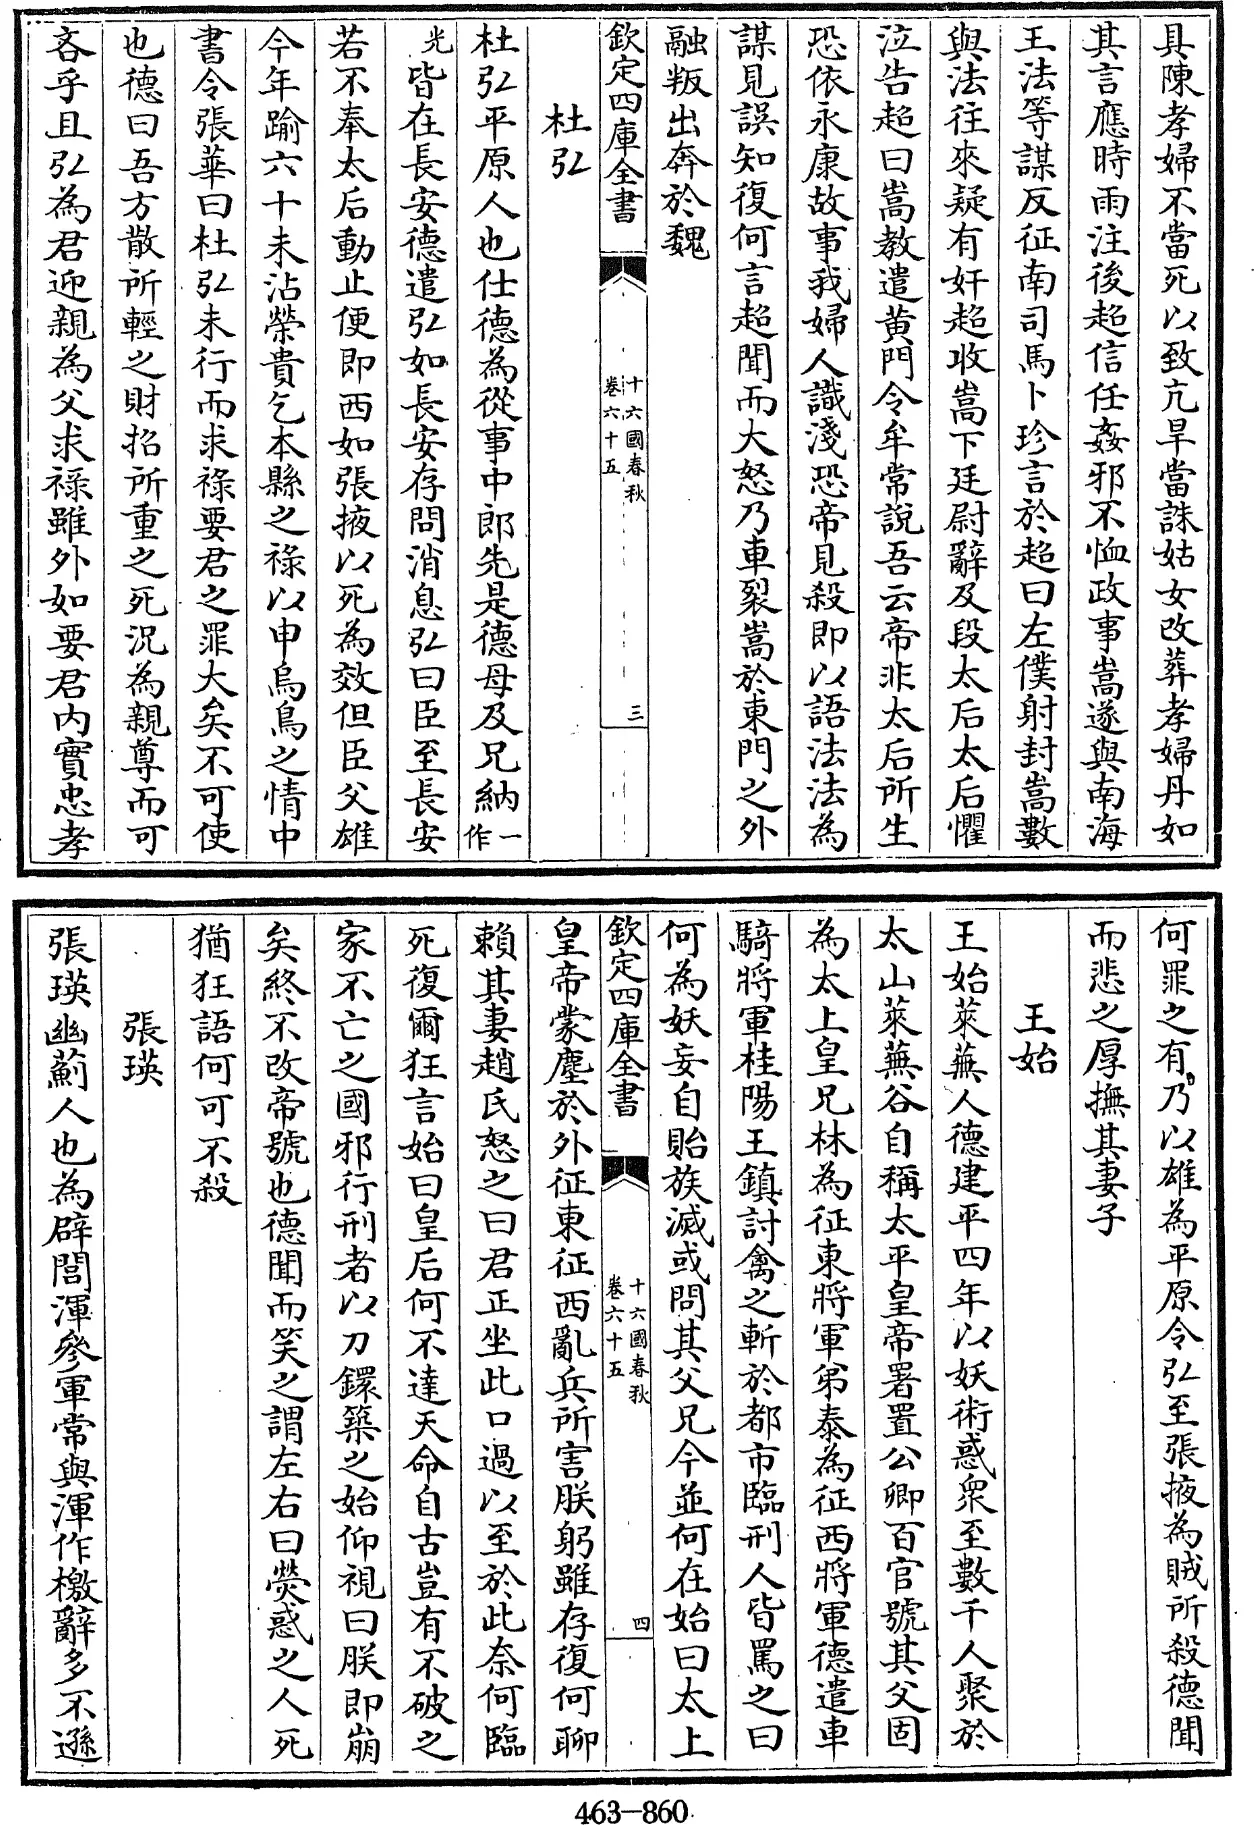 具陳孝婦不當死以致亢旱當誅姑女改葬孝婦丹如
其言應時雨注後超信任姦邪不恤政事嵩遂與南海
王法等謀反征南司馬卜珍言於超曰左僕射封嵩數
與法往來疑有奸超收嵩下廷尉辭及段太后太后懼
泣告超曰嵩教遣黄門令牟常說吾云帝非太后所生
恐依永康故事我婦人識淺恐帝見殺即以語法法為
謀見誤知復何言超聞而大怒乃車裂嵩於東門之外
融叛出奔於魏
欽定四庫全書
十六國春秋
卷六十五
三
杜弘
杜弘平原人也仕德為從事中郎先是德母及兄納一作
光皆在長安德遣弘如長安存問消息弘曰臣至長安
若不奉太后動止便即西如張掖以死為效但臣父雄
今年踰六十未沾榮貴乞本縣之禄以申烏鳥之情中
書令張華曰杜弘未行而求禄要君之罪大矣不可使
也德曰吾方散所輕之財招所重之死況為親尊而可
吝乎且弘為君迎親為父求禄雖外如要君内實忠孝
何罪之有乃以雄為平原令弘至張掖為賊所殺德聞
而悲之厚撫其妻子
王始
王始萊蕪人德建平四年以妖術惑衆至數千人聚於
太山萊蕪谷自稱太平皇帝署置公卿百官號其父固
為太上皇兄林為征東將軍弟泰為征西將軍德遣車
騎將軍桂陽王鎮討禽之斬於都市臨刑人皆罵之曰
何為妖妄自貽族滅或問其父兄今並何在始曰太上
欽定四庫全書
十六國春秋
卷六十五
四
皇帝蒙塵於外征東征西亂兵所害朕躬雖存復何聊
賴其妻趙氏怒之曰君正坐此口過以至於此奈何臨
死復爾狂言始曰皇后何不達天命自古豈有不破之
家不亡之國邪行刑者以刀鐶築之始仰視曰朕即崩
矣終不改帝號也德聞而笑之謂左右曰熒惑之人死
猶狂語何可不殺
張瑛
張瑛幽薊人也為辟閭渾參軍常與渾作檄辭多不遜
463-860